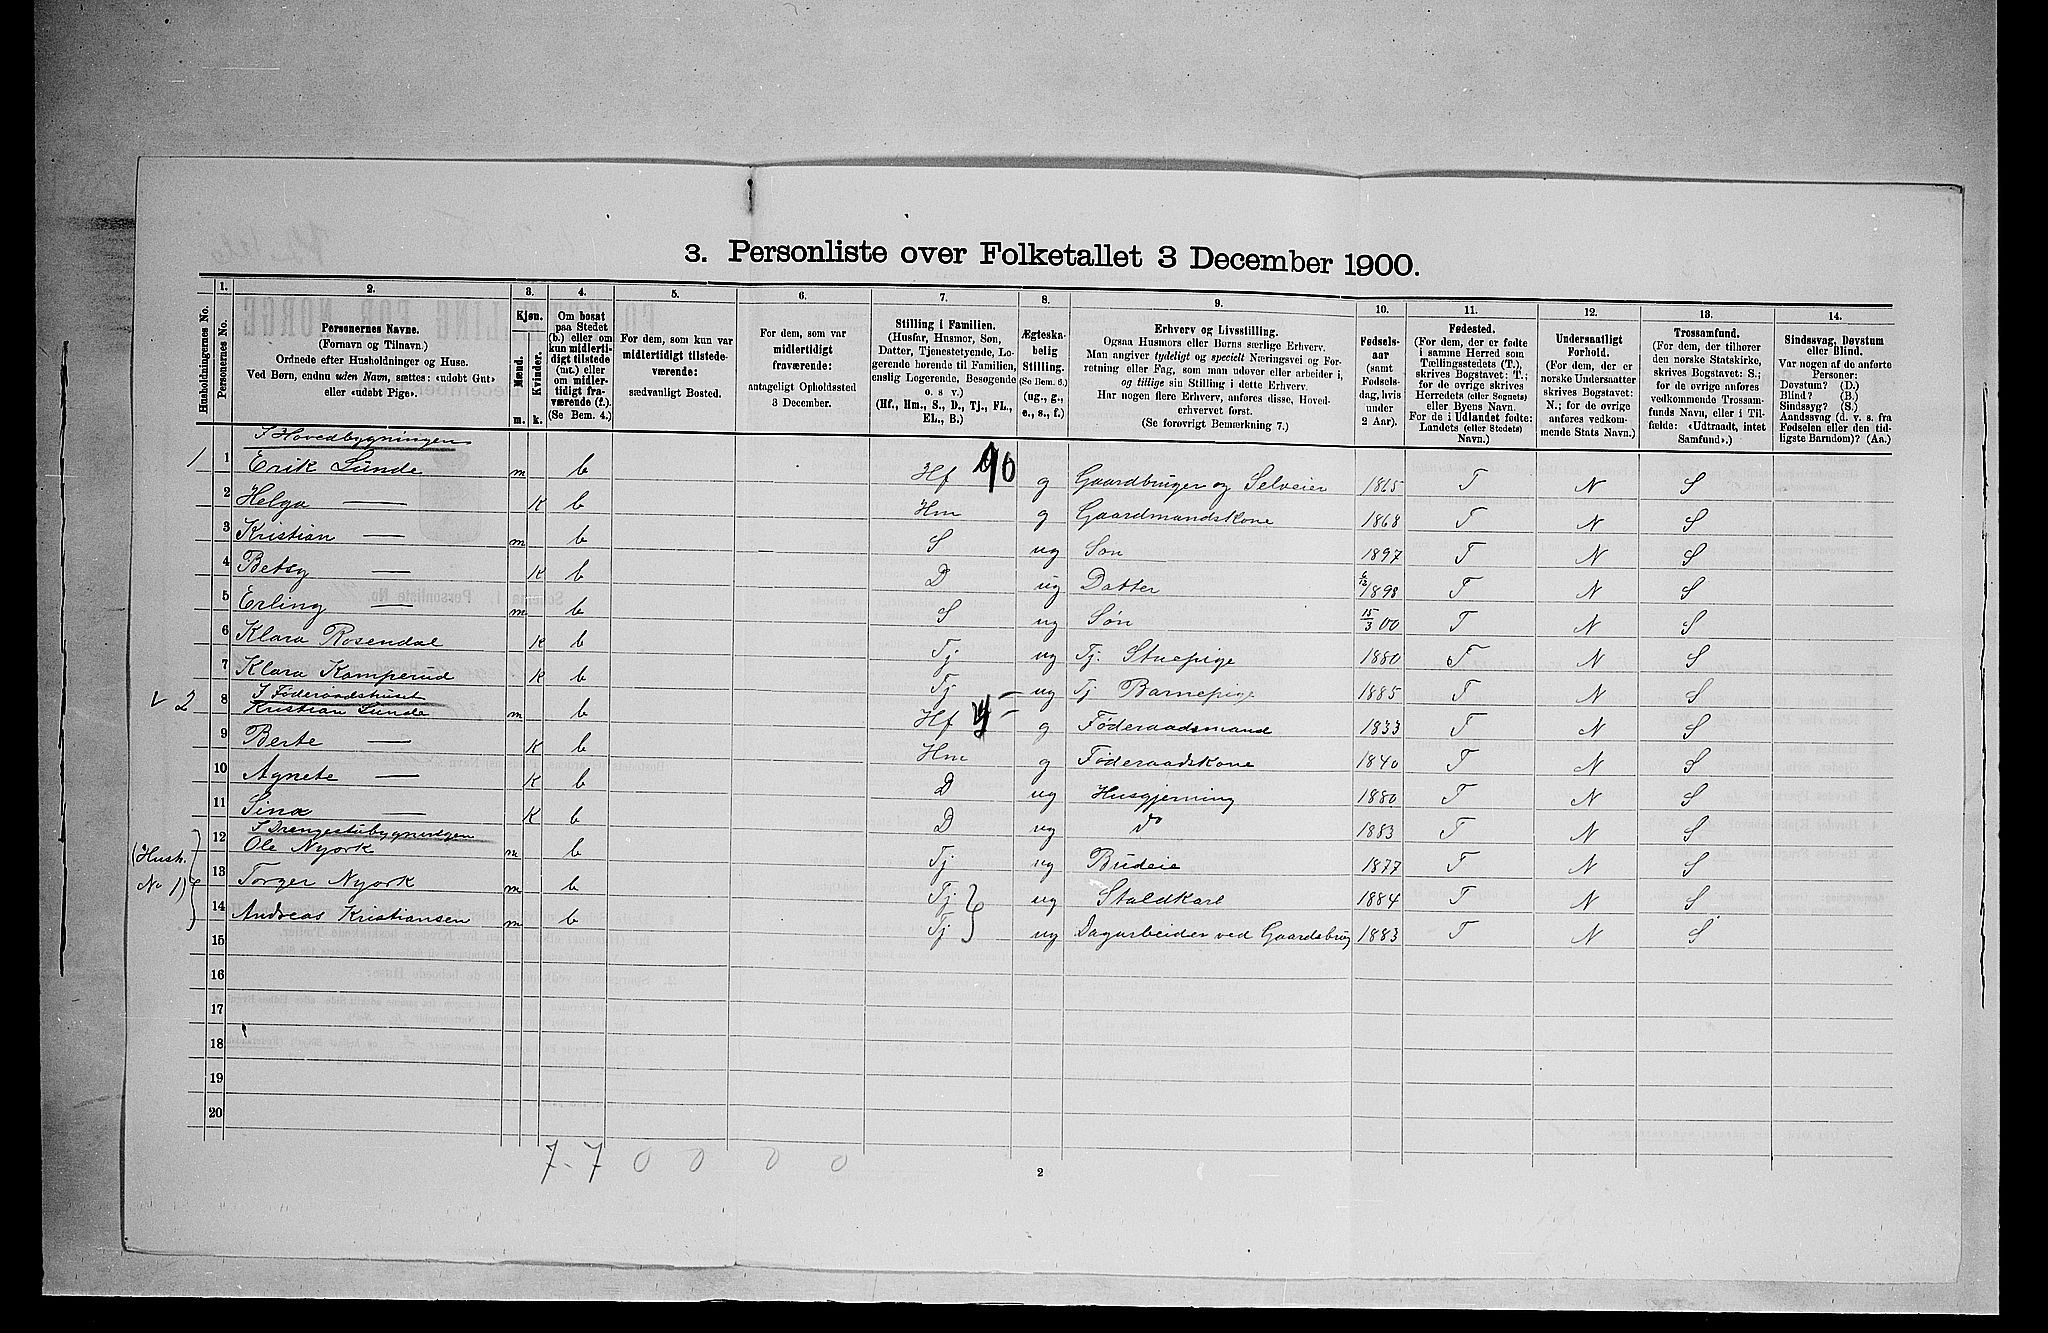 3. Personliste over Folketallet 3 December 1900.
Husholdningernes No.
1. Personernes No.
2. Personernes Navne.
(Fornavn og Tilnavn.)
Ordnede efter Husholdninger og Huse.
Ved Børn, endnu uden Navn, sættes: «udøbt Gut»
eller «udøbt Pige».
3. Kjøn.
Mænd. m.
Kvinder. k.
4. Om bosat
paa Stedet
(b.) eller om
kun midlerti-
digt tilstede
(mt.) eller
om midler-
tidigt fra-
værende (f.).
(Se Bem. 4.)
5. For dem, som kun var
midlertidigt tilstede-
værende:
sædvanligt Bosted.
6. For dem, som var
midlertidigt
fraværende:
antageligt Opholdssted
3 December.
7. Stilling i Familien.
(Husfar, Husmor, Søn,
Datter, Tjenestetyende, Lo-
gerende hørende til Familien,
enslig Logerende, Besøgende
o. s v.)
(Hf., Hm., S., D., Tj., FL.,
EL., B.)
8. Ægteska-
belig
Stilling.
(Se Bem. 6.)
(ug., g.,
e., s., f.)
9. Erhverv og Livsstilling.
Ogsaa Husmors eller Børns særlige Erhverv.
Man angiver tydeligt og specielt Næringsvei og For-
retning eller Fag, som man udøver eller arbeider i,
og tillige sin Stilling i dette Erhverv.
Har nogen flere Erhverv, anføres disse, Hoved-
erhvervet først.
(Se forøvrigt Bemærkning 7.)
10. Fødsels-
aar
(samt
Fødsels-
dag, hvis
under
2 Aar).
11. Fødested.
(For dem, der er fødte
i samme Herred som
Tællingsstedets (T.),
skrives Bogstavet: T.;
for de øvrige skrives
Herredets (eller Sognets)
eller Byens Navn.
For de i Udlandet fødte:
Landets (eller Stedets)
Navn.)
12. Undersaatligt
Forhold.
(For dem, der er
norske Undersaatter
skrives Bogstavet:
N.; for de øvrige
anføres vedkom-
mende Stats Navn.)
13. Trossamfund.
(For dem, der tilhører
den norske Statskirke,
skrives Bogstavet: S.;
for de øvrige anføres
vedkommende Trossam-
funds Navn, eller i Til-
fælde: «Udtraadt, intet
Samfund».)
14. Sindssvag, Døvstum
eller Blind.
Var nogen af de anførte
Personer:
Døvstum? (D.)
Blind? (B.)
Sindssyg? (S.)
Aandssvag (d. v. s. fra
Fødselen eller den tid-
ligste Barndom)? (Aa.)
I Hovedbygningen
1 1 Erik Lunde m b Hf g Gaardbruger og Selveier 1865 T N S
2 Helga — K b Hm g Gaardmandskone 1868 T N S
3 Kristian — m b S ug Søn 1897 T N S
4 Betsy — K b D ug Datter 6/12 1898 T N S
5 Erling — m b S ug Søn 15/3 00 T N S
6 Klara Rosendal K b Tj ug Tj. Stuepige 1880 T N S
7 Klara Kamperud K b Tj ug Tj Barnepige 1885 T N S
I Føderaadshuset
v 2 8 Kristian Lunde m b Hf g Føderaadsmand 1833 T N S
9 Berte — K b Hm g Føderaadskone 1840 T N S
10 Agnete — K b D ug Husgjerning 1880 T N S
11 Sina — K b D ug do 1883 T N S
I Drengestubygningen
(Hush. No 1) 12 Ole Nyørk m b Tj ug Budeie 1877 T N S
13 Torger Nyørk m b Tj ug Staldkarl 1884 T N S
14 Andreas Kristiansen m b Tj ug Dagarbeider ved Gaardsbrug 1883 T N S
15
16
17
18
19
20
7 - 7 0 0 0 0
2